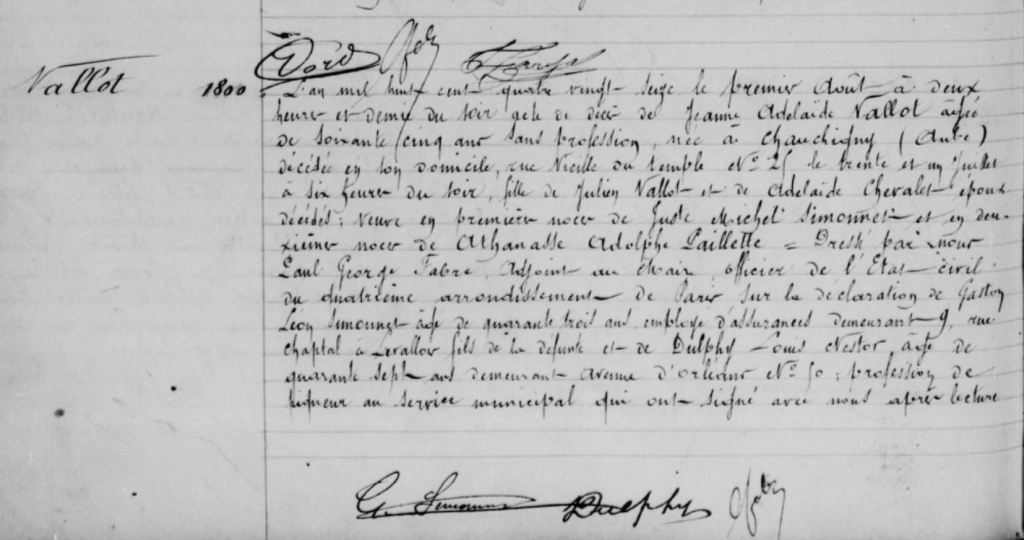 Vallot
1800
L'an mil huit cent quatre vingt seize le premier Août à deux
heures et demie du soir acte de décès de Jeanne Adelaïde Vallot âgée
de soixante cinq ans sans profession, née à Chauchigny (Aube)
décédée en son domicile, rue Vieille du temple No 25 le trente et un Juillet
à six heures du soir, fille de Julien Vallot et de Adelaïde Chevalet époux
décédés; Veuve en premières noces de Juste Michel Simonnet et en deu-
xièmes noces de Athanasse Adolphe Paillette = Dressé par nous
Paul George Fabre, Adjoint au Maire, officier de l'Etat civil
du quatrième arrondissement de Paris sur la déclaration de Gaston
Léon Simonnet âgé de quarante trois ans employé d'assurances demeurant 9, rue
Chaptal à Levallois fils de la défunte et de Dulphy Louis Nestor âgé de
quarante sept ans demeurant Avenue d'Orléans No 50; profession de
ligneur au service municipal qui ont signé avec nous après lecture
G. Simonnet Dulphy Fabre